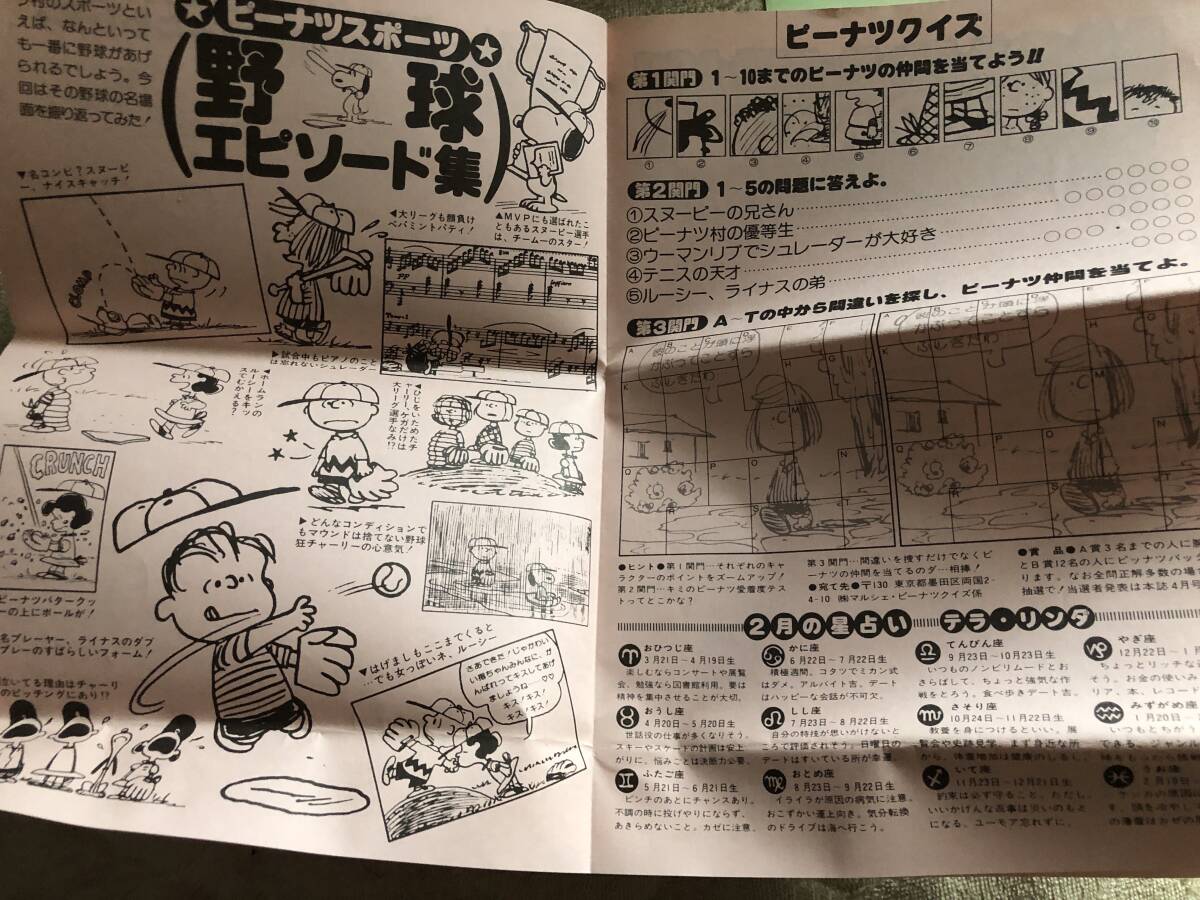 村のスポーツとい
えば、なんといって
も一番に野球があげ
られるでしょう。今
回はその野球の名場
面を振り返ってみた!
ピーナツスポーツ
野球
エピソード集
▼名コンビ?スヌーピ
ー、ナイスキャッチ!
◀大リーグも顔負け
ペパミントパティ!
▲MVPにも選ばれたこ
ともあるスヌーピー選手
は、チーム一のスター!
▶試合中もピアノのこと
は忘れないシュレーダー
◀ホームランの
ルーシーをキッ
スでむかえる?
◀ひじをいためたチ
ャーリー、ケガだけは
大リーグ選手なみ!?
CRUNCH
▶どんなコンディションで
もマウンドは捨てない野球
狂チャーリーの心意気!
ピーナツバタークッ
ーの上にボールが!
名プレーヤー、ライナスのダブ
プレーのすばらしいフォーム!
▼はげましもここまでくると
…でも女っぽいネ、ルーシー
さあできた!じゃかわい
い膨ちゃんみんなに、が
んばれってキスしてあげ
ましょうね♡♡
キス!キス!
キス!キス!
泣いてる理由はチャーリ
のピッチングにあり!?
ピーナツクイズ
第1関門 1~10までのピーナツの仲間を当てよう!!
① ② ③ ④ ⑤ ⑥ ⑦ ⑧ ⑨ ⑩
第2関門 1~5の問題に答えよ。
①スヌーピーの兄さん
②ピーナツ村の優等生
③ウーマンリブでシュレーダーが大好き
④テニスの天才
⑤ルーシー、ライナスの弟
第3関門 A~Tの中から間違いを探し、ピーナツ仲間を当てよ。
●ヒント●第1関門…それぞれのキャ
ラクターのポイントをズームアップ!
第2関門…キミのピーナツ愛着度テス
トってとこかな?
第3関門…間違いを捜すだけでなくピ
ーナツの仲間を当てるのダ…相棒!
●宛て先●〒130 東京都墨田区両国2-
4-10 ㈱マルシェ・ピーナツクイズ係
●賞 品●A賞3名までの人に
とB賞12名の人にピッナツパッ
ります。なお全問正解多数の場
抽選で!当選者発表は本誌4月
2月の星占い テラ・リンダ
おひつじ座
3月21日~4月19日生
楽しむならコンサートや展覧
会、勉強なら図書館利用。要は
精神を集中させることが大切。
おうし座
4月20日~5月20日生
世話役の仕事が多くなりそう。
スキーやスケートの計画は安上
がりに。悩みごとは決断力必要。
ふたご座
5月21日~6月21日生
ピンチのあとにチャンスあり。
不調の時に投げやりにならず、
あきらめないこと。カゼに注意。
かに座
6月22日~7月22日生
積極週間。コタツでミカン式
はダメ。アルバイト吉。デート
はハッピーな会話が不可欠。
しし座
7月23日~8月22日生
自分の特技が思いがけないと
ころで評価されそう。日曜日の
デートはすいている所が幸運。
おとめ座
8月23日~9月22日生
イライラが原因の病気に注意。
おこずかい運上向き。気分転換
のドライブは海へ行こう。
てんびん座
9月23日~10月23日生
いつものノンビリムードとお
さらばして、ちょっと強気な作
戦をとろう。食べ歩きデート吉。
さそり座
10月24日~11月22日生
教養を身につけるといい。展
覧会や史跡見学、まず身近な所
から。体重増加は健康のしるし。
いて座
11月23日~12月21日生
約束は必ず守ること。ただし、
いいかげんな返事は災いのもと
になる。ユーモア忘れずに。
やぎ座
12月22日~1月
ちょっとリッチな
そう。お金の使いみ
リア、本、レコー
みずがめ座
1月20日~
いつもとちか
できる。ジャン
うお座